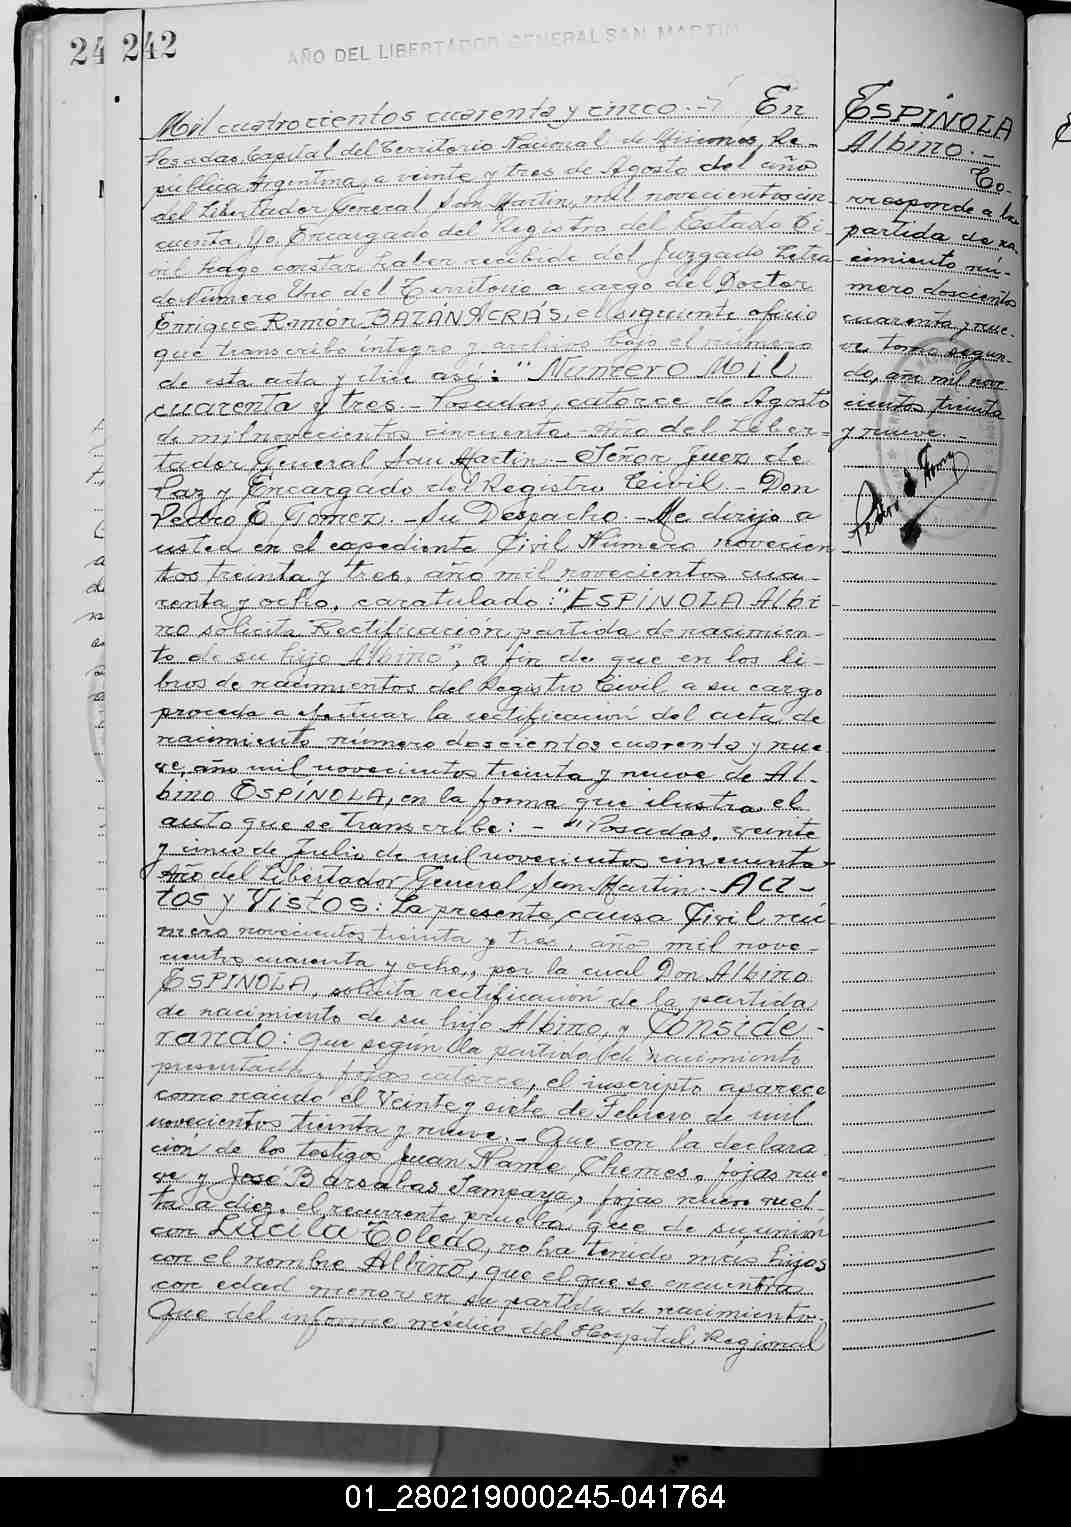 24 242
AÑO DEL LIBERTADOR GENERAL SAN MARTIN
Mil cuatrocientos cuarenta y cinco.- En
Posadas Capital del Territorio Nacional de Misiones, Re-
pública Argentina, a veinte y tres de Agosto del año
del Libertador General San Martín, mil novecientos cin-
cuenta. Yo, Encargado del Registro del Estado Ci-
vil hago constar haber recibido del Juzgado Letra-
do Número Uno del Territorio a cargo del Doctor
Enrique Ramón BAZÁN AGRÁS, el siguiente oficio
que transcribo íntegro y archivo bajo el número
de esta acta y dice así: "Numero Mil
cuarenta y tres.- Posadas, catorce de Agosto
de mil novecientos cincuenta.- Año del Liber-
tador General San Martín.- Señor Juez de
Paz y Encargado del Registro Civil.- Don
Pedro E. Gomez.- Su Despacho.- Me dirijo a
usted en el expediente Civil Número novecien
tos treinta y tres, año mil novecientos cua-
renta y ocho, caratulado: "ESPÍNOLA Albi
no solicita Rectificación partida de nacimien-
to de su hijo Albino", a fin de que en los li-
bros de nacimientos del Registro Civil a su cargo
proceda a efectuar la rectificación del acta de
nacimiento número doscientos cuarenta y nue
ve, año mil novecientos treinta y nueve de Al-
bino ESPÍNOLA, en la forma que ilustra el
auto que se transcribe: - "Posadas, veinte
y cinco de Julio de mil novecientos cincuenta-
Año del Libertador General San Martín.- AU-
TOS y VISTOS: La presente causa Civil nú-
mero novecientos treinta y tres, año mil nove-
cientos cuarenta y ocho, por la cual Don Albino
ESPINOLA, solicita rectificación de la partida
de nacimiento de su hijo Albino, y Conside-
rando: Que según la partida de nacimiento
presentada a fojas catorce, el inscripto aparece
como nacido el Veinte y siete de Febrero de mil
novecientos treinta y nueve.- Que con la declara
ción de los testigos Juan Name Chemes, fojas nue
ve y José Barsabas Sampaya, fojas nueve vuel-
ta a diez, el recurrente prueba que de su unión
con Lucila Toledo, no ha tenido más hijos
con el nombre Albino, que el que se encuentra
con edad menor en su partida de nacimiento.
Que del informe médico del Hospital Regional
ESPÍNOLA
Albino.-
Co-
rresponde a la
partida de na-
cimiento nú-
mero doscientos
cuarenta y nue-
ve, tomo segun-
do, año mil nove
cientos treinta
y nueve.-
01_280219000245-041764